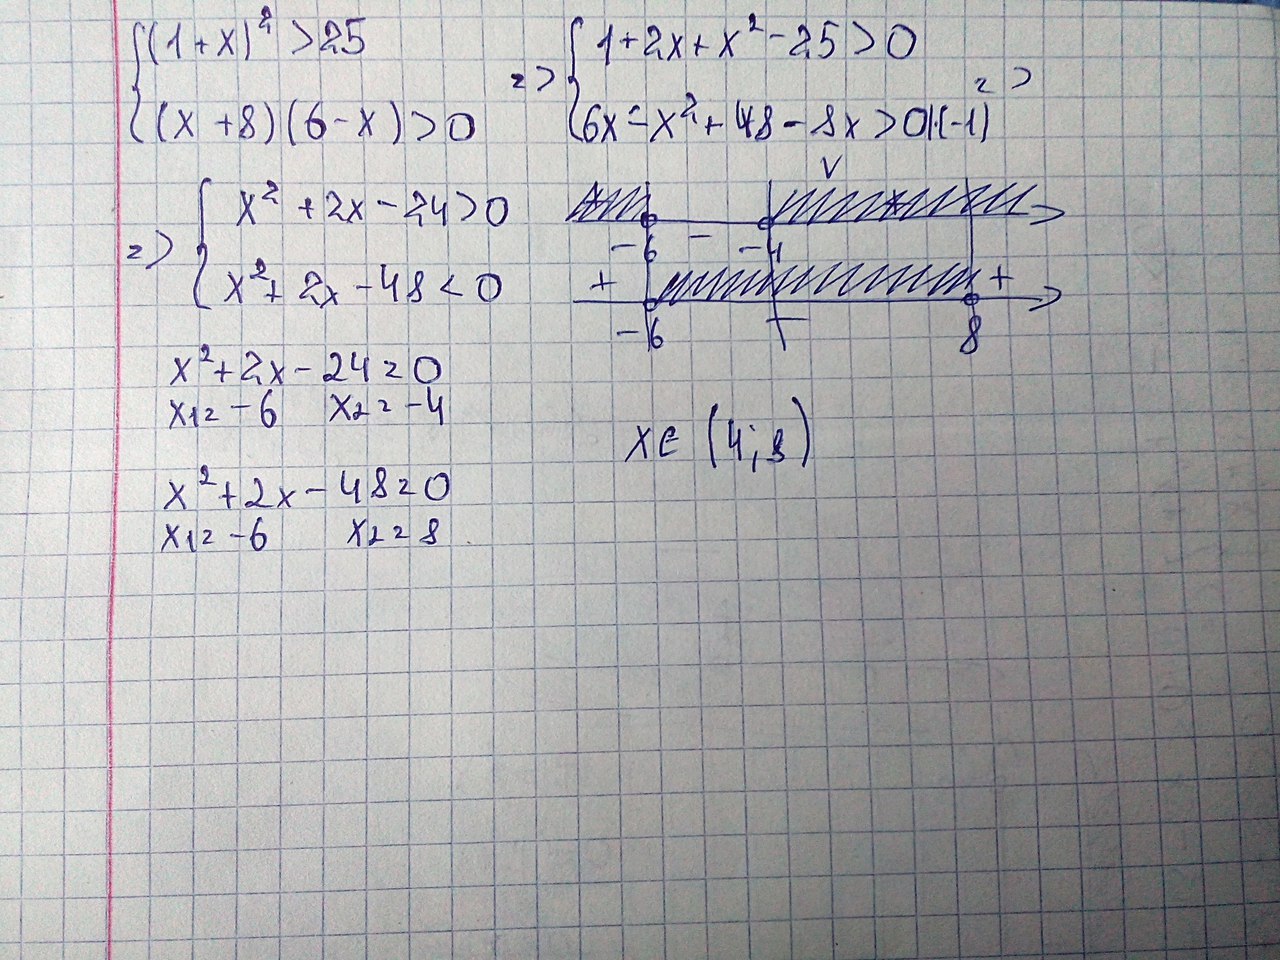 {(1+x)² >25
{(x+8)(6-x)>0
=> {1+2x+x²-25>0
{6x-x²+48-8x>0|·(-1) =>
=> {x²+2x-24>0
{x²+2x-48<0
x²+2x-24=0
x1=-6 x2=-4
x²+2x-48=0
x1=-6 x2=8
+ V +
-6 - -4
+ +
-6 - 8
x∈ (4;8)